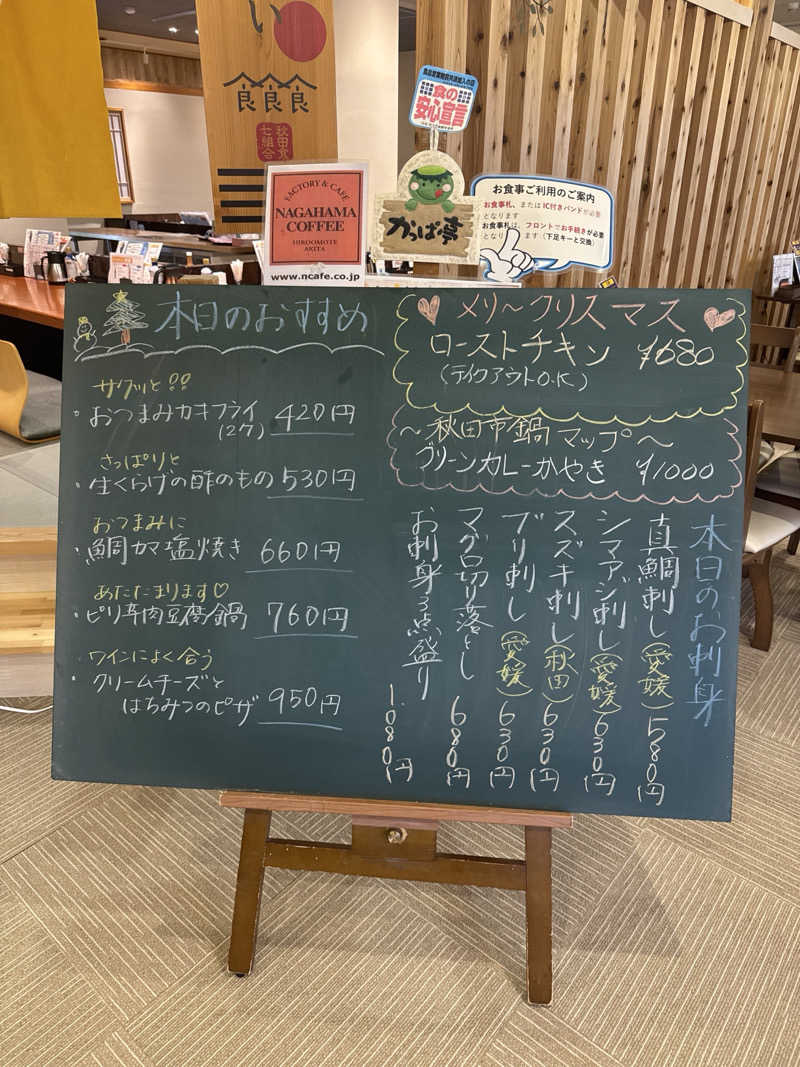 い
食食食
秋田食
七組合
食の
安心宣言
FACTORY & CAFE
NAGAHAMA
COFFEE
HIROOMOTE
AKITA
www.ncafe.co.jp
かっぱ亭
お食事ご利用のご案内
お食事札、またはIC付きバンドが必要
となります
お食事札は、フロントでお手続きが必要
となります(下足キーと交換)
本日のおすすめ
サクッと!!
・おつまみカキフライ 420円
(2ケ)
さっぱりと
・生くらげの酢のもの 530円
おつまみに
・鯛カマ塩焼き 660円
あたたまります♡
・ピリ辛肉豆腐鍋 760円
ワインによく合う
・クリームチーズと
はちみつのピザ 950円
メリ〜クリスマス
ローストチキン ¥680
(テイクアウトO.K)
〜秋田市鍋マップ〜
グリーンカレーかやき ¥1000
本日のお刺身
真鯛刺し(愛媛)580円
シマアジ刺し(愛媛)630円
スズキ刺し(秋田)630円
ブリ刺し(愛媛)630円
マグロ切り落とし 680円
お刺身3点盛り 1.080円